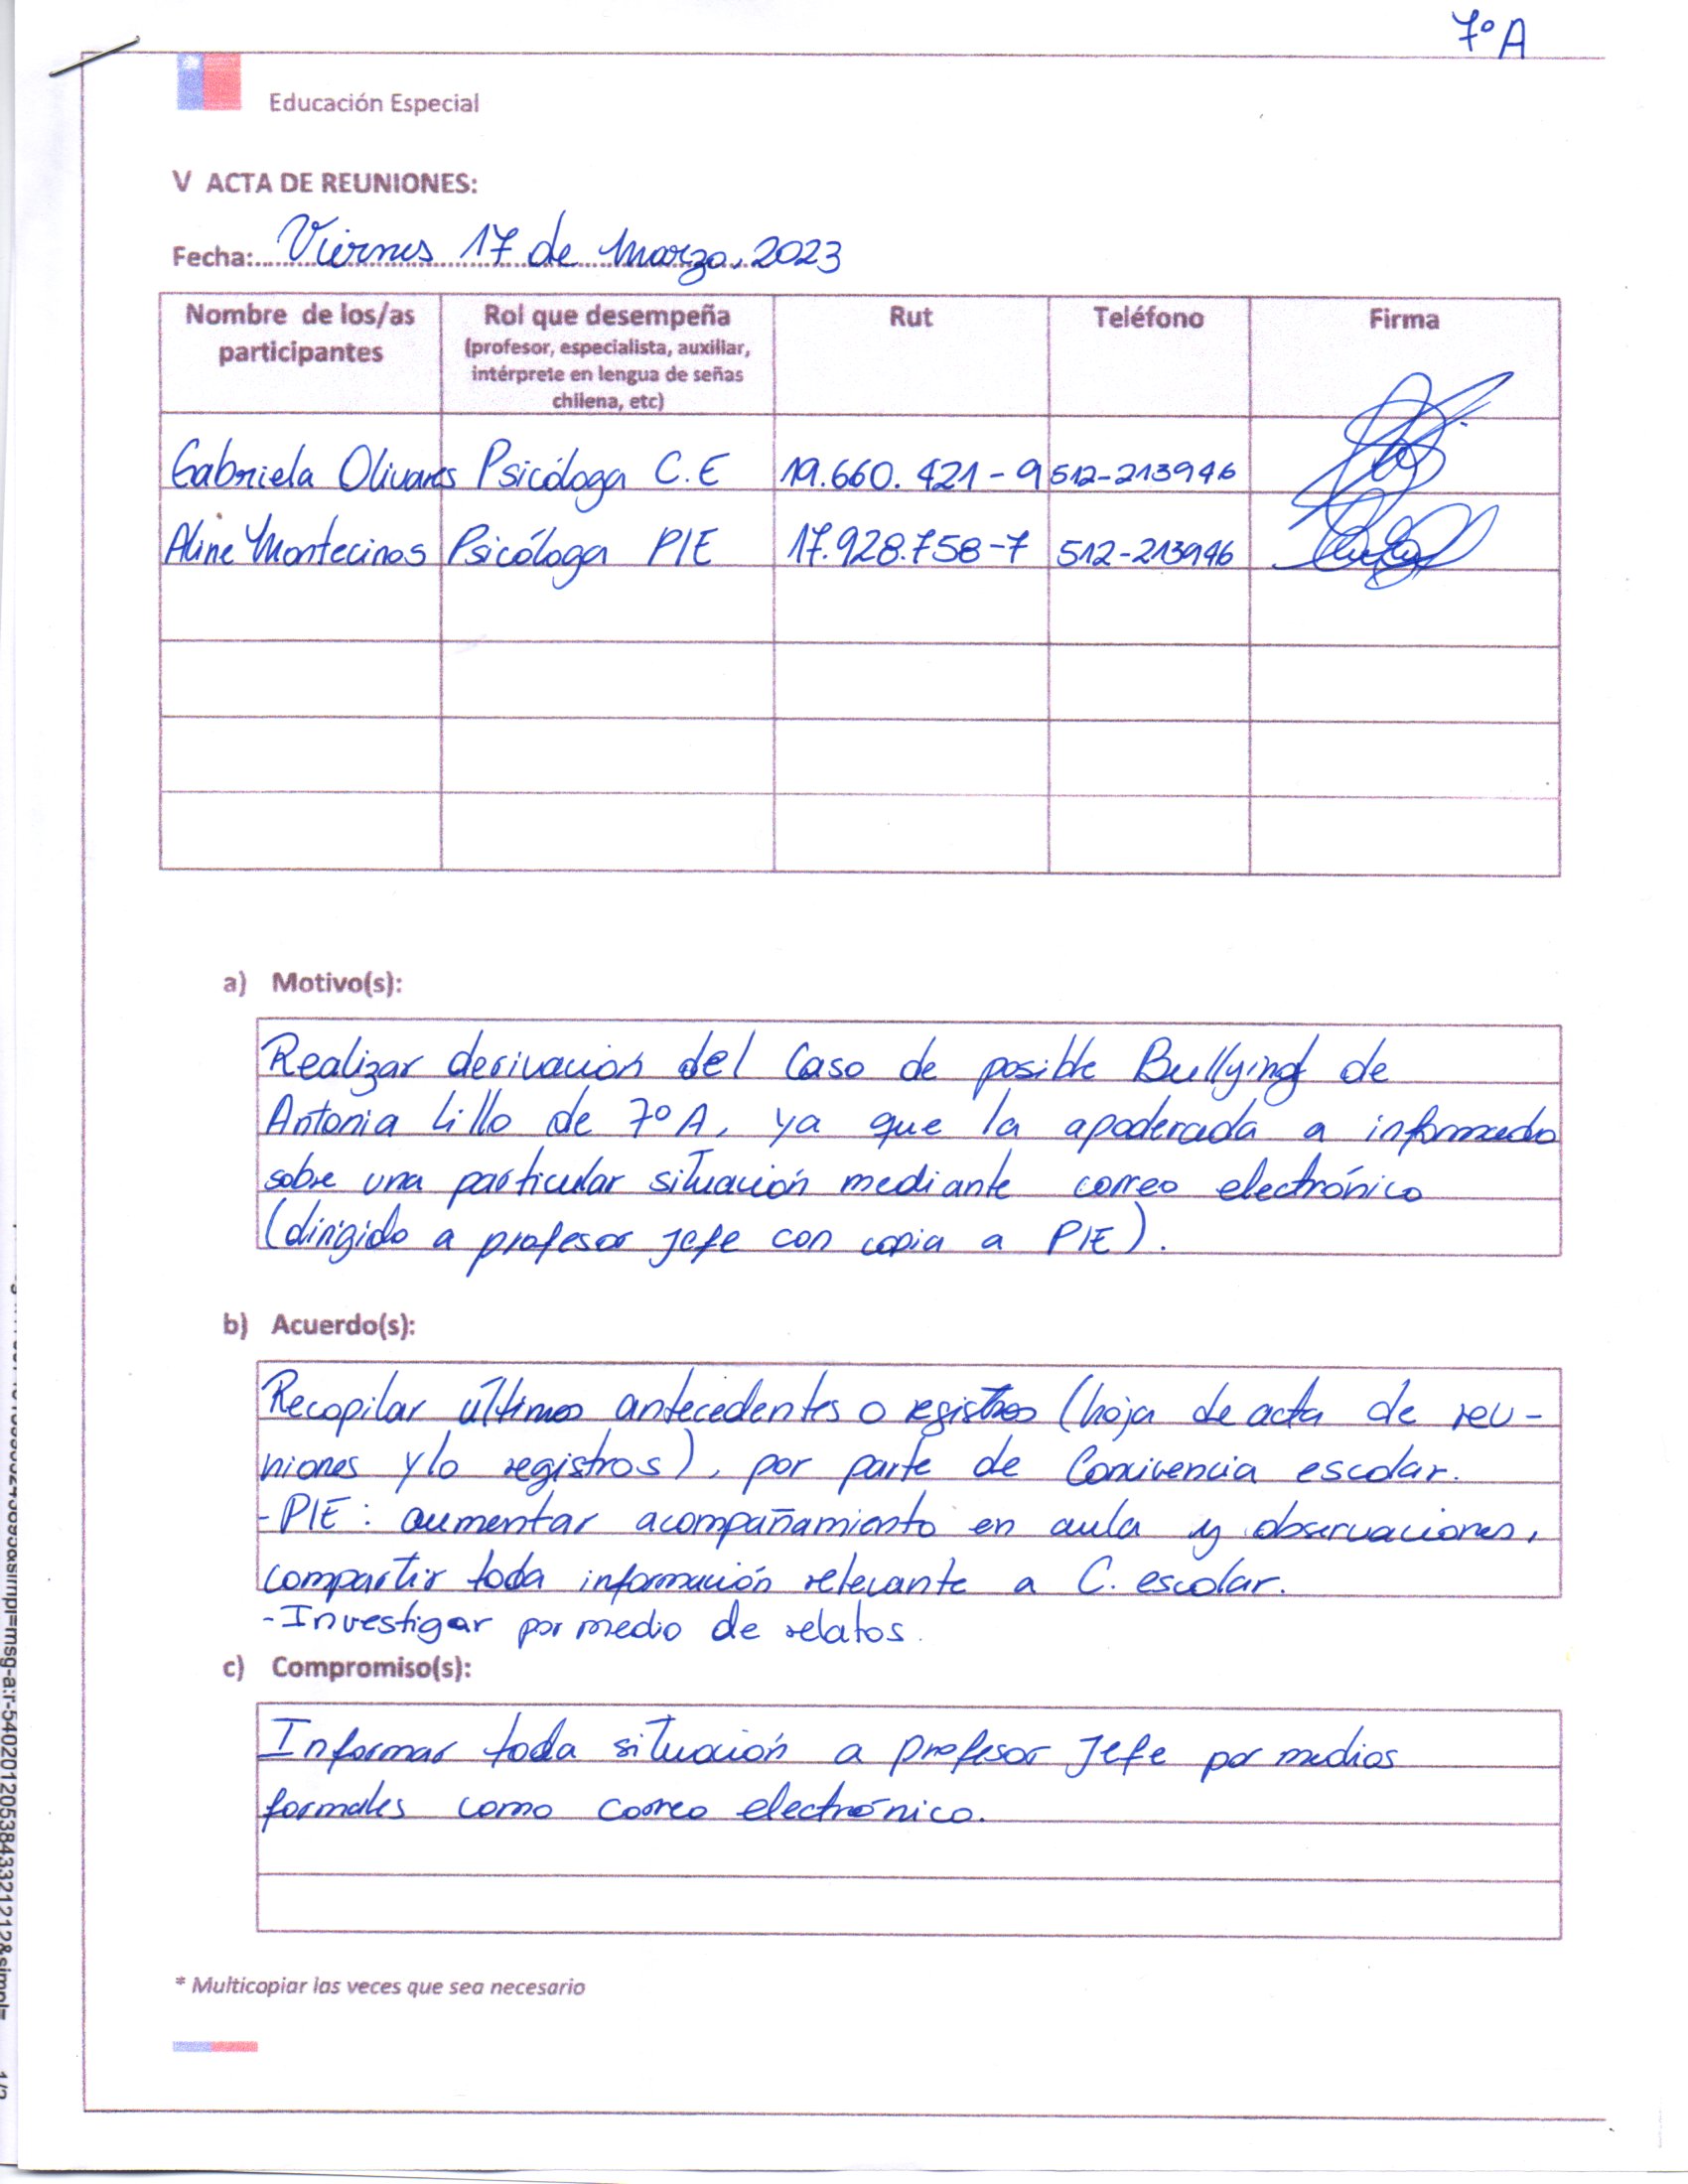 7° A
Educación Especial
V ACTA DE REUNIONES:
Fecha:.... Viernes 17 de Marzo, 2023
Nombre de los/as participantes
Rol que desempeña (profesor, especialista, auxiliar, intérprete en lengua de señas chilena, etc)
Rut
Teléfono
Firma
Gabriela Olivares Psicóloga C.E 19.660.421-9 512-213946
Aline Montecinos Psicóloga PIE 17.928.758-7 512-213946
a) Motivo(s):
Realizar derivación del Caso de posible Bullying de
Antonia Lillo de 7° A, ya que la apoderada a informado
sobre una particular situación mediante correo electrónico
(dirigido a profesor jefe con copia a PIE).
b) Acuerdo(s):
Recopilar últimos antecedentes o registros (hoja de acta de reu-
niones y/o registros), por parte de Convivencia escolar.
- PIE: aumentar acompañamiento en aula y observaciones,
compartir toda información relevante a C. escolar.
- Investigar por medio de relatos.
c) Compromiso(s):
Informar toda situación a profesor Jefe por medios
formales como correo electrónico.
* Multicopiar las veces que sea necesario